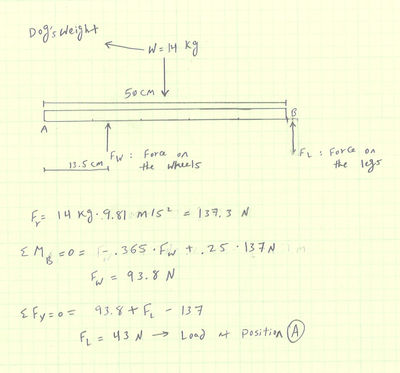 Dog's Weight
W = 14 Kg
50 cm
A
B
13.5 cm
Fw : Force on the wheels
FL : Force on the legs
Fy = 14 Kg · 9.81 m/s² = 137.3 N
ΣM_B = 0 = - .365 · Fw + .25 · 137 N
Fw = 93.8 N
ΣFy = 0 = 93.8 + FL - 137
FL = 43 N → Load at position (A)